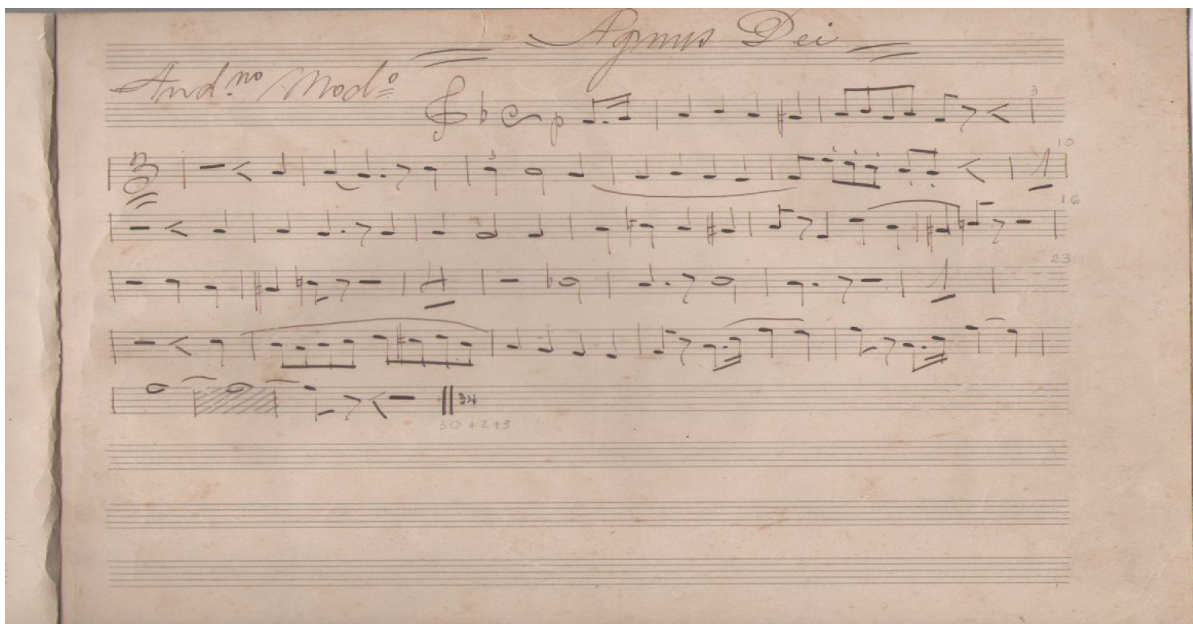 Agnus Dei
And.no Mod.o
p
3
3
10
16
23
34
30 + 2 + 3